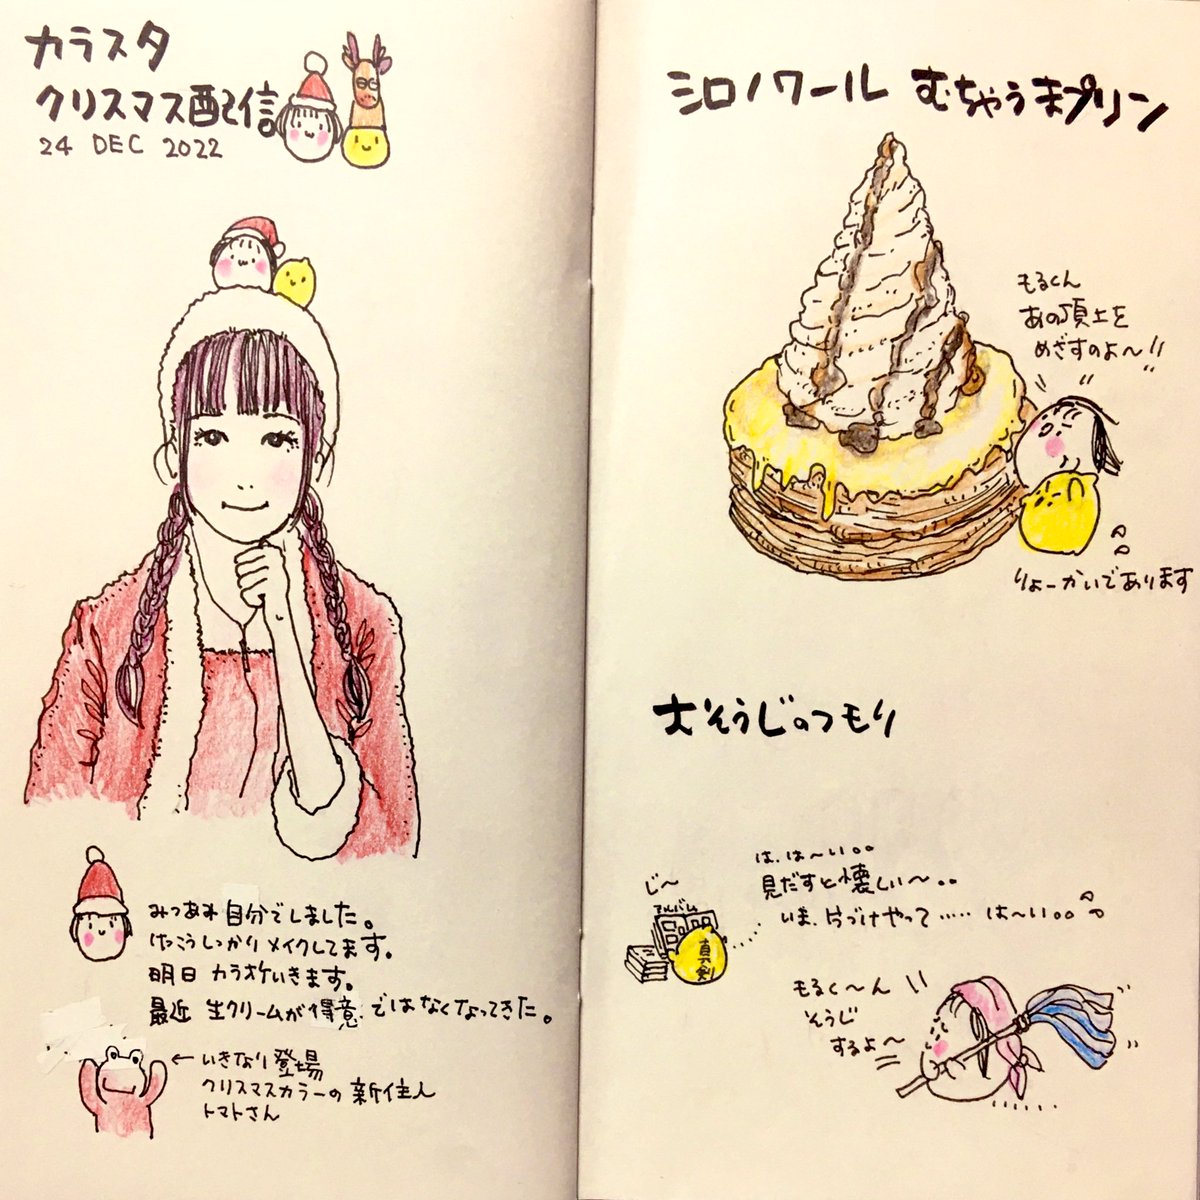 カラスタ
クリスマス配信
24 DEC 2022
みつあみ 自分でしました。
けっこうしっかりメイクしてます。
明日 カラオケいきます。
最近 生クリームが得意ではなくなってきた。
←いきなり登場
クリスマスカラーの新住人
トマトさん
シロノワール むちゃうまプリン
もるくん
あの頂上を
めざすのよ〜!!
りょーかいであります
おそうじのつもり
は、は〜い。。
見だすと懐しい〜。。
いま、片づけやって‥‥‥は〜い。。
じ〜
アルバム
真剣
もるく〜ん
そうじ
するよ〜